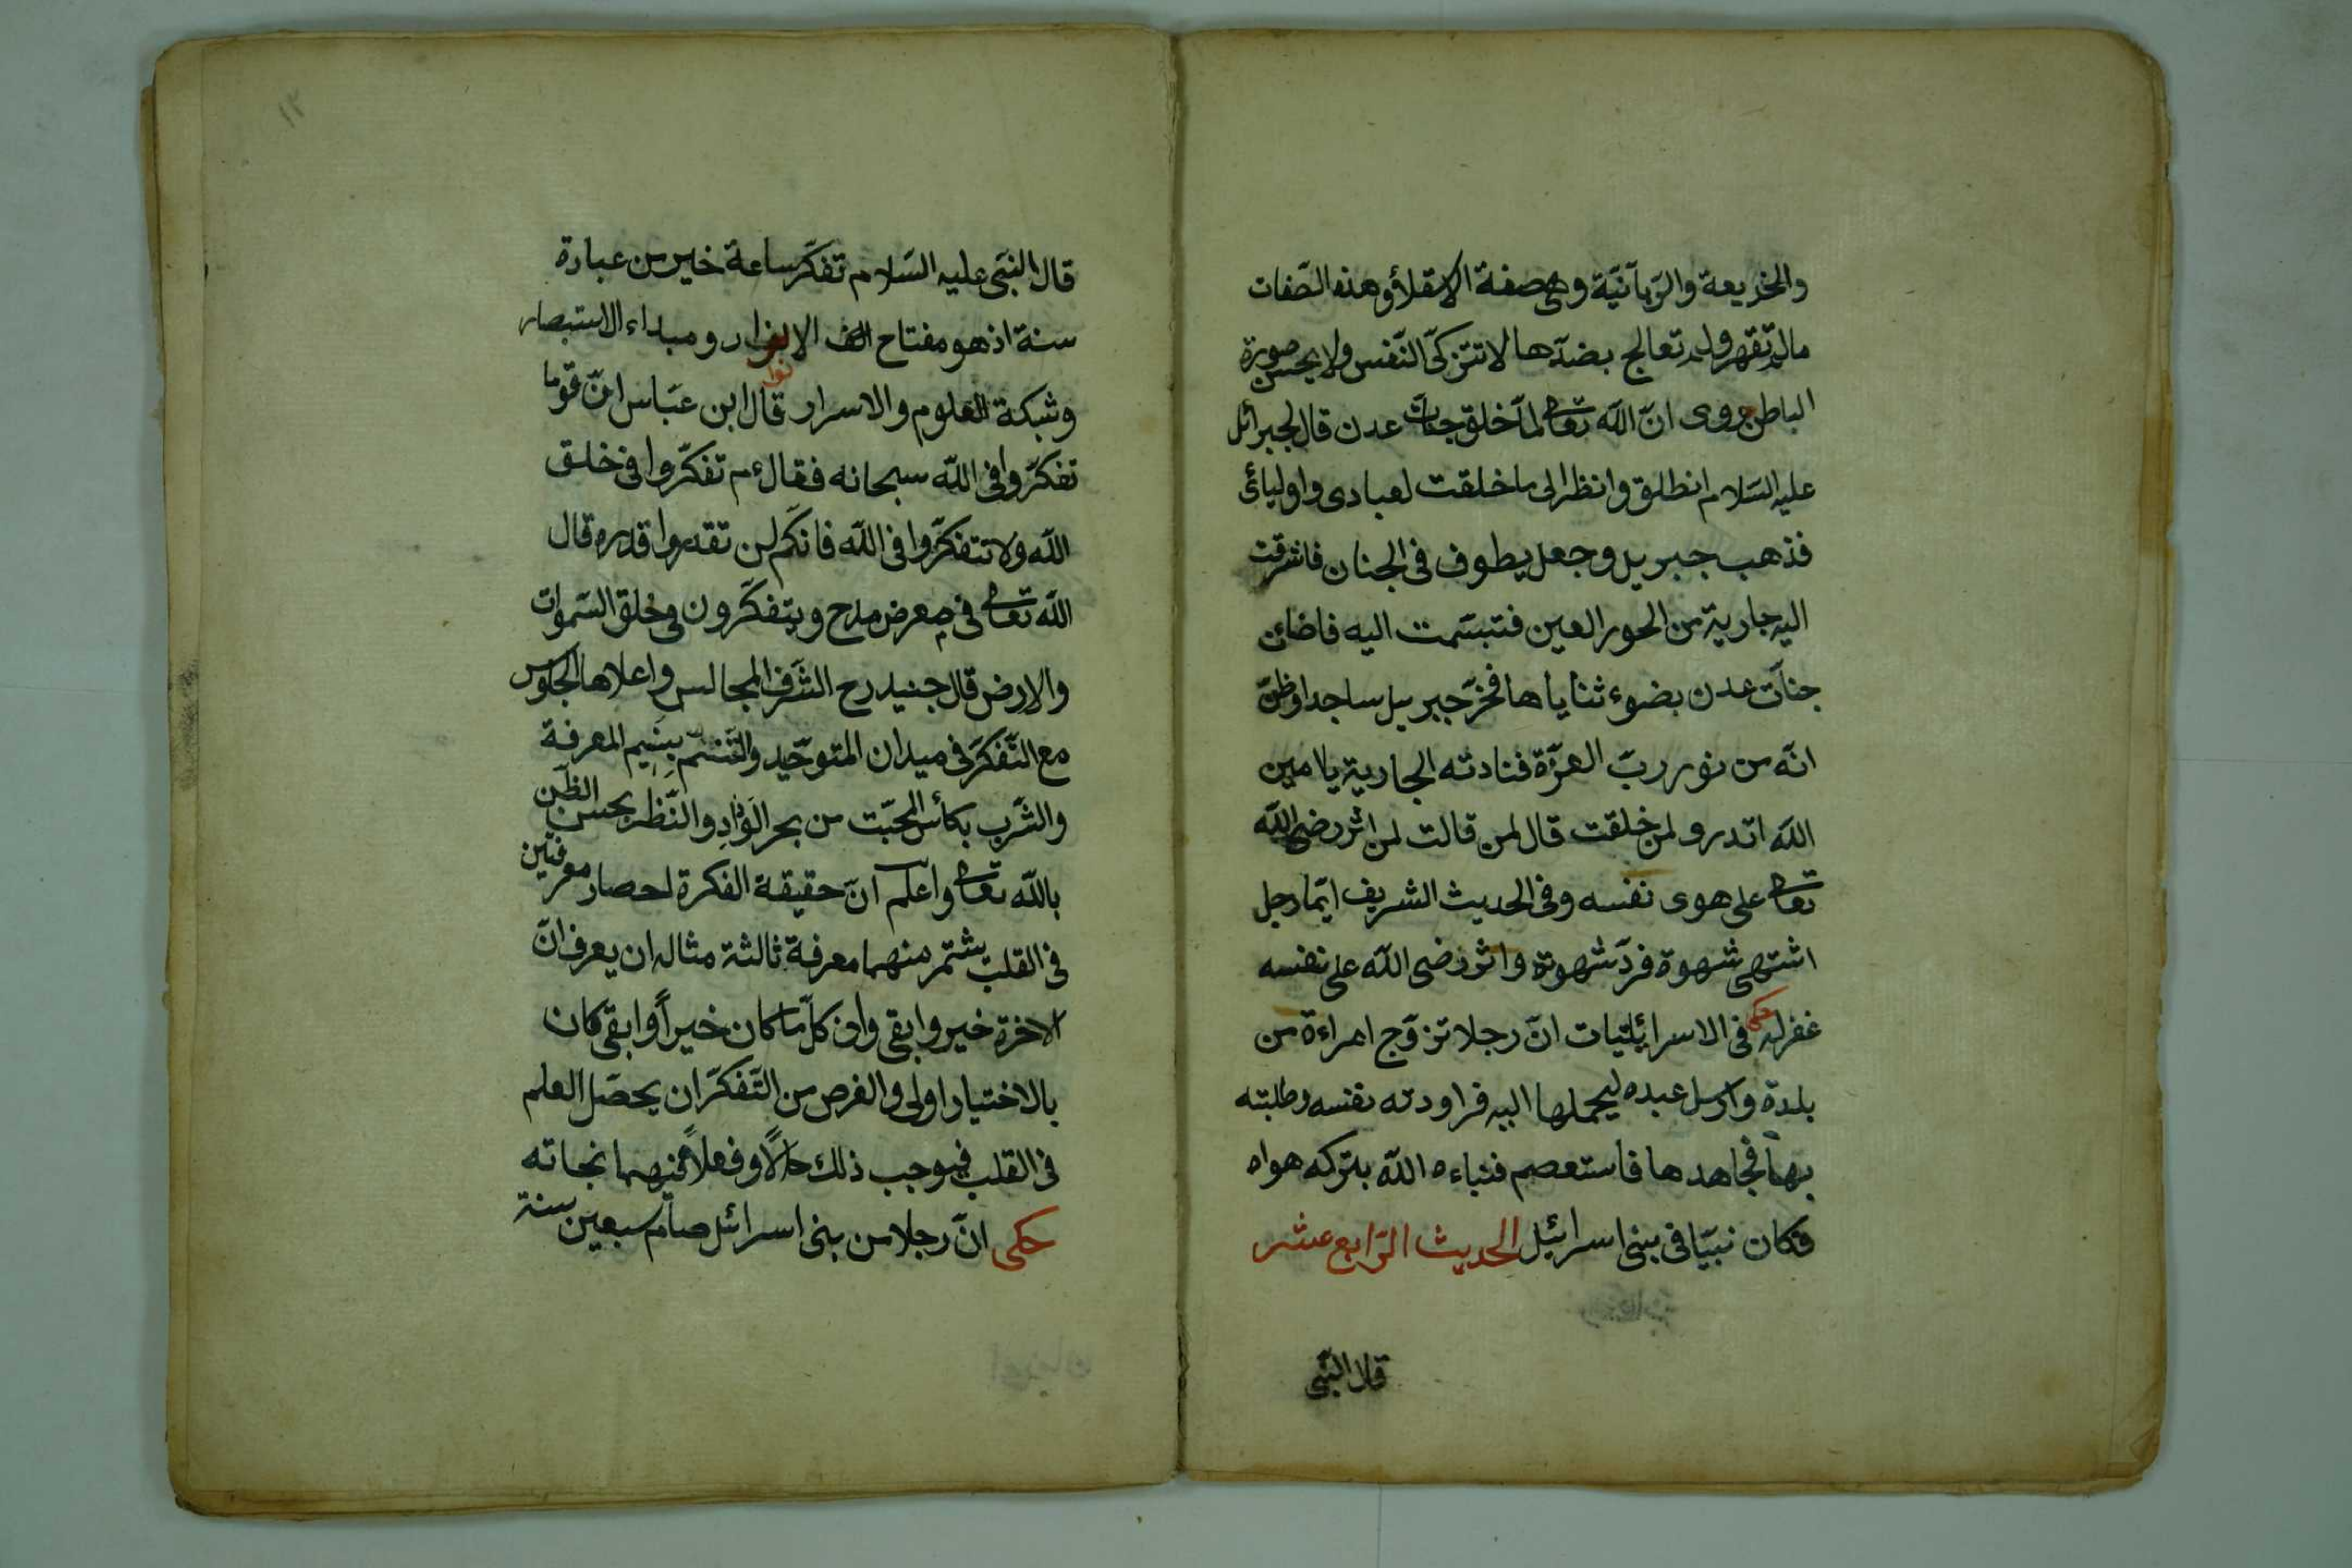 والخذيعة والربانيّة وهى صفة الاستقلاؤ وهذه الصّفات
مالم تقهر ولم تعالج بضدّها لا تتزكّى النّفس ولا يحسن صورة
الباطن روى انّ الله تعالى لمّا خلق جنات عدن قال لجبرائل
عليه السّلام انطلق وانظر الى ما خلقت لعبادى واوليائى
فذهب جبريل وجعل يطوف فى الجنان فاشرقت
اليه جارية من الحور العين فتبسّمت اليه فاضائن
جنات عدن بضوء ثناياها فخرّ جبريل ساجدا وظنّ
انّه من نور ربّ العزّة فنادته الجارية يا امين
الله اتدرو لمن خلقت قال لمن قالت لمن اثر رضى الله
تعالى على هوى نفسه وفى الحديث الشريف ايّما رجل
اشتهى شهوة فردّ شهوته واثر رضى الله على نفسه
غفر له حكى فى الاسرائيليّات انّ رجلا تزوّج امراءة من
بلدة وارسل عبده ليحملها اليه فراودته نفسه وطلبته
بها فجاهدها فاستعصم فنباءه الله بتركه هواه
فكان نبيّا فى بنى اسرائيل الحديث الرّابع عشر
قال النّبى
١٢
قال النبى عليه السّلام تفكّر ساعة خير من عبادة
سنة اذ هو مفتاح الانوار ومبداء الاستبصار
نوا
وشبكة العلوم والاسرار قال ابن عبّاس انّ قوما
تفكّروا فى الله سبحانه فقال ءم تفكّروا فى خلق
الله ولا تتفكّروا فى الله فانّكم لن تقدروا قدره قال
الله تعالى فى معرض مدح ويتفكّرون فى خلق السّموات
والارض قال جنيد رح الشّرف المجالس واعلاها الجلوس
مع التّفكّر فى ميدان المتوحّيد والتّنسّم بنسيم المعرفة
والشّرب بكائس المحبّت من بحر الوَدادِ والنّظر بحسن الظّن
بالله تعالى واعلم انّ حقيقة الفكرة احصار معرفتين
فى القلب يثتمر منهما معرفة ثالثة مثاله ان يعرف انّ
الاخرة خير وابقى وان كلّ ما كان خيراً وابقى كان
بالاختيار اولى والغرص من التّفكّر ان يحصّل العلم
فى القلب فيوجب ذلك حالاً وفعلاً منهما نجاته
حكى انّ رجلا من بنى اسرائل صام سبعين سنة